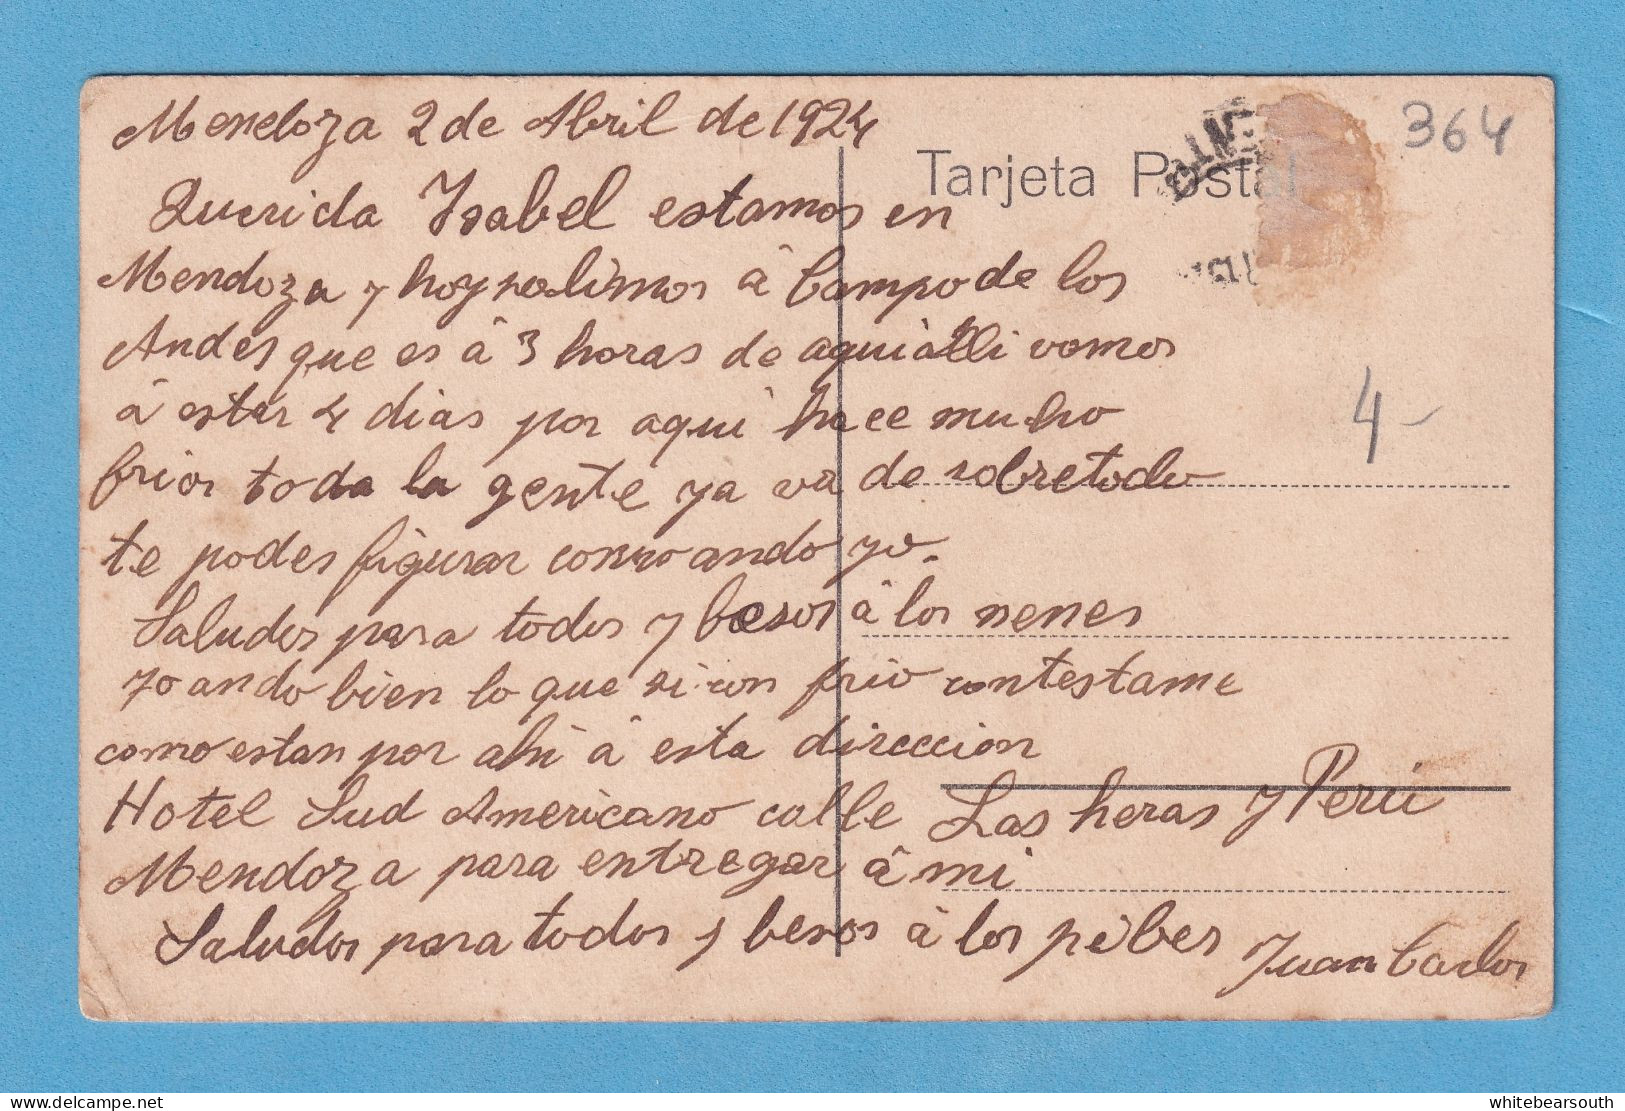 Mendoza 2 de Abril de 1924
Tarjeta Postal
364
Querida Ysabel estamos en
Mendoza y hoy salimos á Campo de los
Andes que es á 3 horas de aqui alli vamos
á estar 4 dias por aqui hace mucho
4-
frior toda la gente ya va de sobretodo
te podes figurar como ando yo.
Saludos para todos y besos á los nenes
yo ando bien lo que si con frio contestame
como estan por ahi á esta direccion
Hotel Sud Americano calle Las heras y Perú
Mendoza para entregar á mi
Saludos para todos y besos á los pibes Juan Carlos
whitebearsouth
delcampe.net